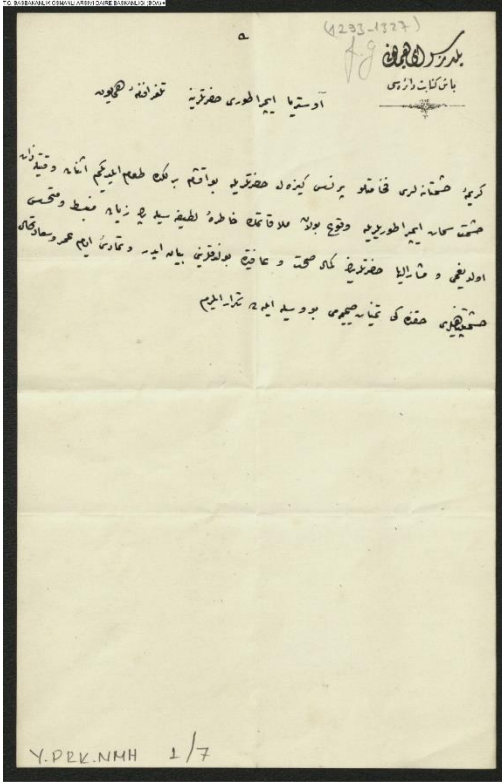 T.C. BAŞBAKANLIK OSMANLI ARŞİVİ DAİRE BAŞKANLIĞI (BOA)
(1293-1327)
يلديز سراى همايونى
باش كتابت دائره سى
آوستريا ايمپراطورى حضرتلرينه تلغرافنامهٔ همايون
كريمهٔ حشمتانه لرى فخامتلو پرنسس كيزه لا حضرتلريله بو آقشام برلكده طعام ايلديكم اثناده
حشمت ايمپراطوريلريله وقوع بولان ملاقاتمك خاطرهٔ لطيفه سيله
اولديغمى و مشار اليها حضرتلرينك كمال صحت و عافيتده بولندقلرينى بيان ايدر و تمادئ ايام عمر و سعادت
حقنده كى تمنيات صميميه مى بو وسيله ايله ده تكرار ايلرم
Y.PRK.NMH 1/7